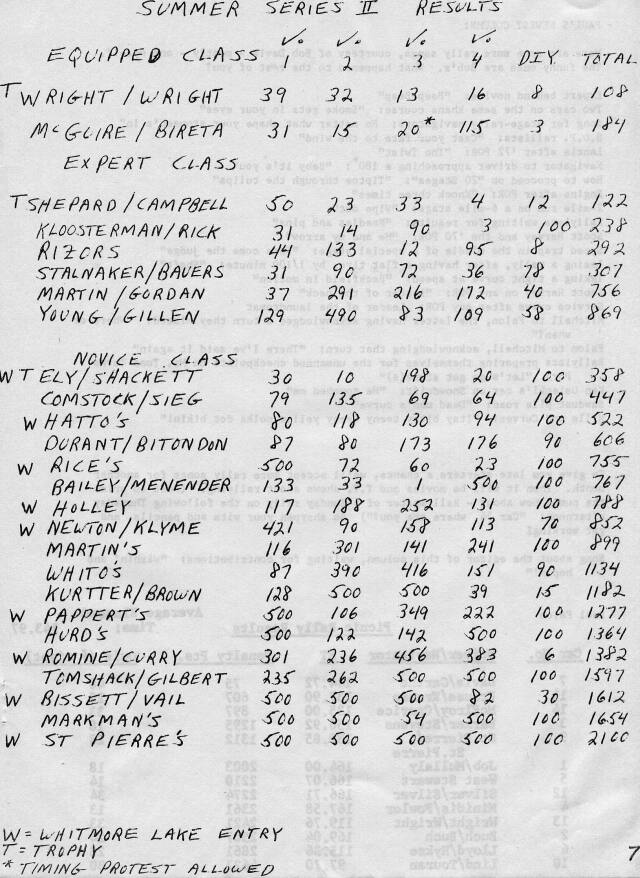 SUMMER SERIES II RESULTS
EQUIPPED CLASS ✓. 1 ✓. 2 ✓. 3 ✓. 4 DIY TOTAL
T WRIGHT/WRIGHT 39 32 13 16 8 108
McGUIRE/BIRETA 31 15 20* 115 3 184
EXPERT CLASS
T SHEPARD/CAMPBELL 50 23 33 4 12 122
KLOOSTERMAN/RICK 31 14 90 3 100 238
RIZORS 44 133 12 95 8 292
STALNAKER/BAUERS 31 90 72 36 78 307
MARTIN/GORDAN 37 291 216 172 40 756
YOUNG/GILLEN 129 490 83 109 58 869
NOVICE CLASS
W T ELY/SHACKETT 30 10 198 20 100 358
COMSTOCK/SIEG 79 135 69 64 100 447
W HATTO'S 80 118 130 94 100 522
DURANT/BITONDON 87 80 173 176 90 606
W RICE'S 500 72 60 23 100 755
BAILEY/MENENDER 133 33 1 500 100 767
W HOLLEY 117 188 252 131 100 788
W NEWTON/KLYME 421 90 158 113 70 852
MARTIN'S 116 301 141 241 100 899
WHITO'S 87 390 416 151 90 1134
KURTTER/BROWN 128 500 500 39 15 1182
W PAPPERT'S 500 106 349 222 100 1277
HURD'S 500 122 142 500 100 1364
W ROMINE/CURRY 301 236 456 383 6 1382
TOMSHACK/GILBERT 235 262 500 500 100 1597
W BISSETT/VAIL 500 500 500 82 30 1612
MARKMAN'S 500 500 54 500 100 1654
W ST PIERRE'S 500 500 500 500 100 2100
W = WHITMORE LAKE ENTRY
T = TROPHY
* TIMING PROTEST ALLOWED
7